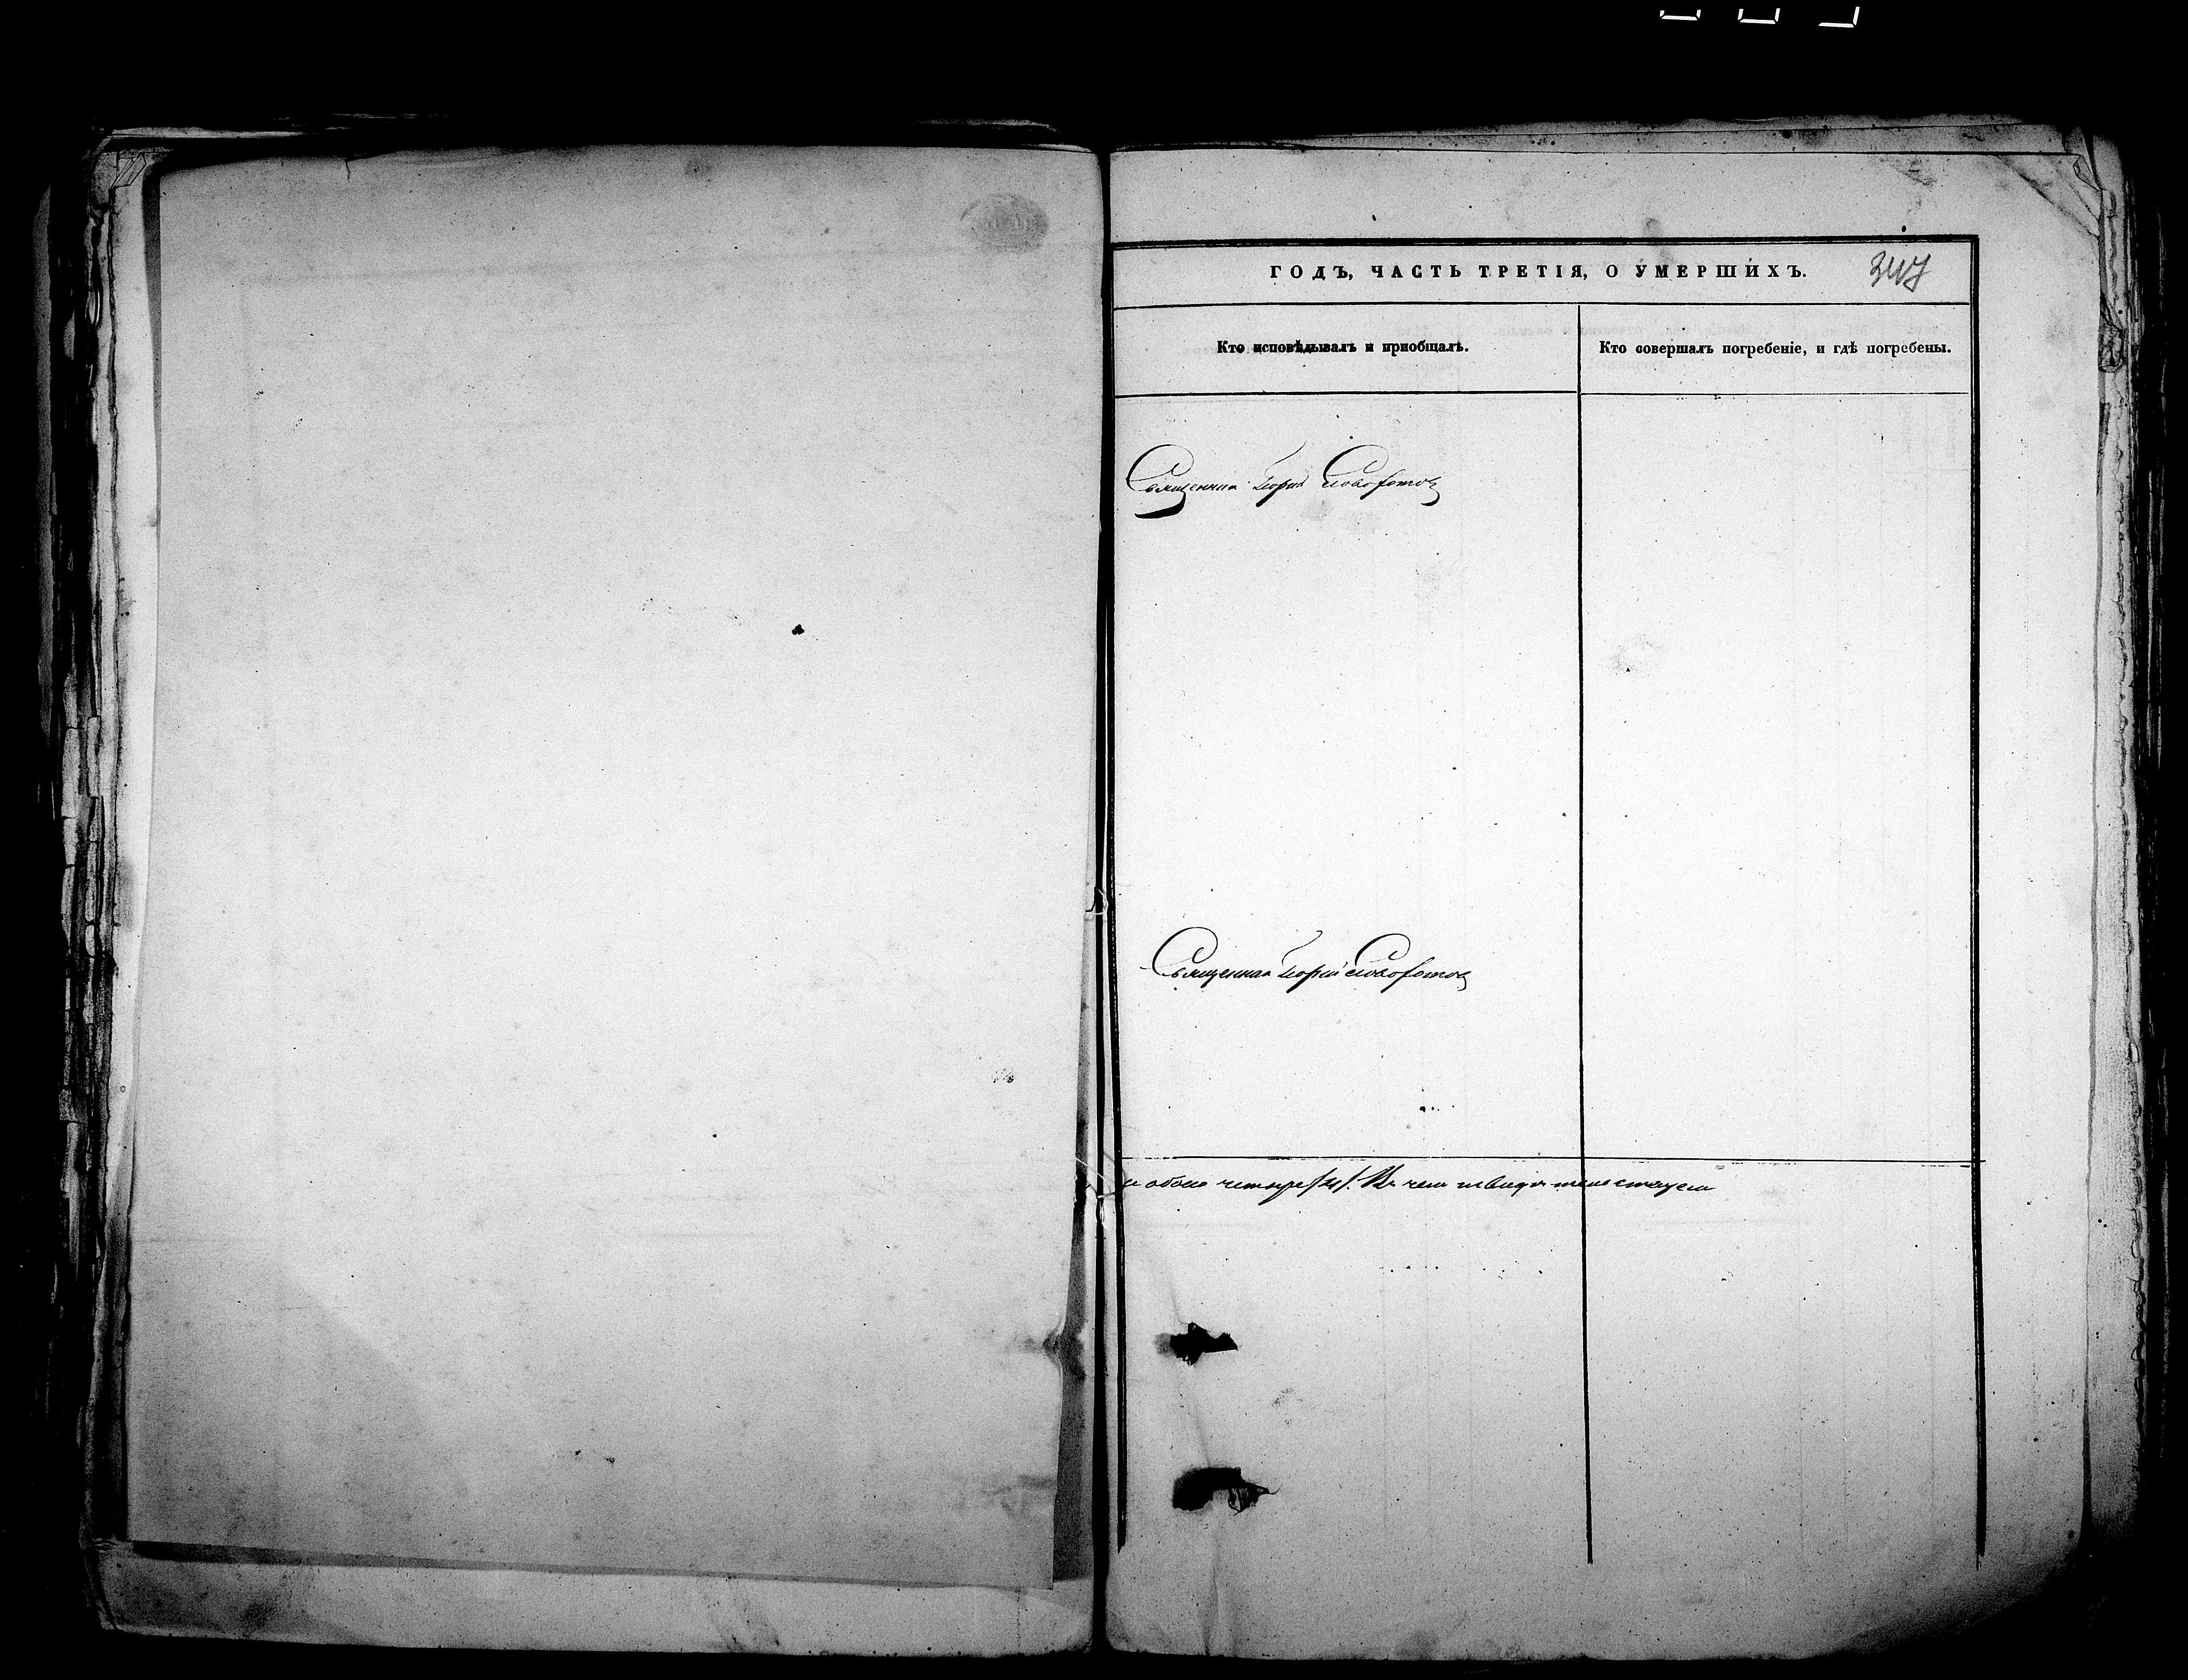 ГОДЪ, ЧАСТЬ ТРЕТІЯ, О УМЕРШИХЪ.
347
Кто исповѣдывалъ и приобщалъ.
Кто совершалъ погребеніе, и гдѣ погребены.
Священник Георгій
Священник Георгій
и обоего четыре /4/. Въ чем и свидетельствуем